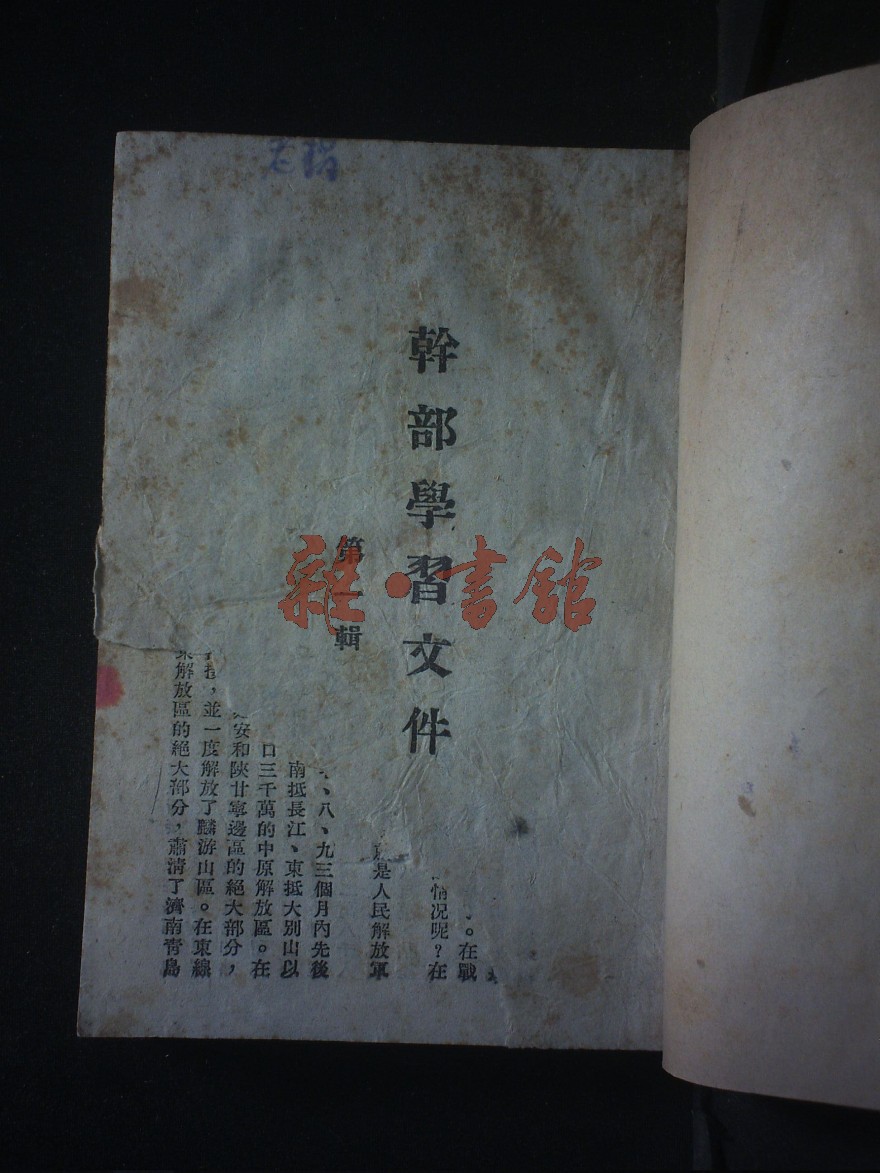 幹部學習文件
第一輯
雜·書館
。在戰
情况呢？在
是人民解放軍
、八、九三個月內先後
南抵長江、東抵大別山以
口三千萬的中原解放區。在
安和陝甘寧邊區的絕大部分，
，並一度解放了麟游山區。在東線
解放區的絕大部分，肅清了濟南青島